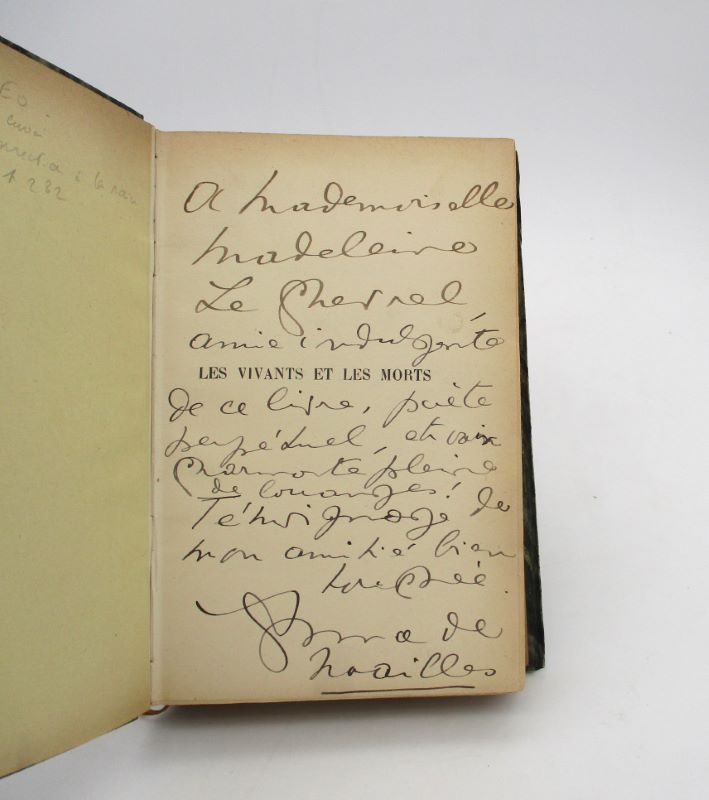 EO
envoi
282
A Mademoiselle
Madeleine
Le Chevrel,
amie indulgente
LES VIVANTS ET LES MORTS
de ce livre, poète
perpétuel, et voix
charmante pleine
de louanges !
Témoignage de
mon amitié bien
touchée.
Anna de
Noailles